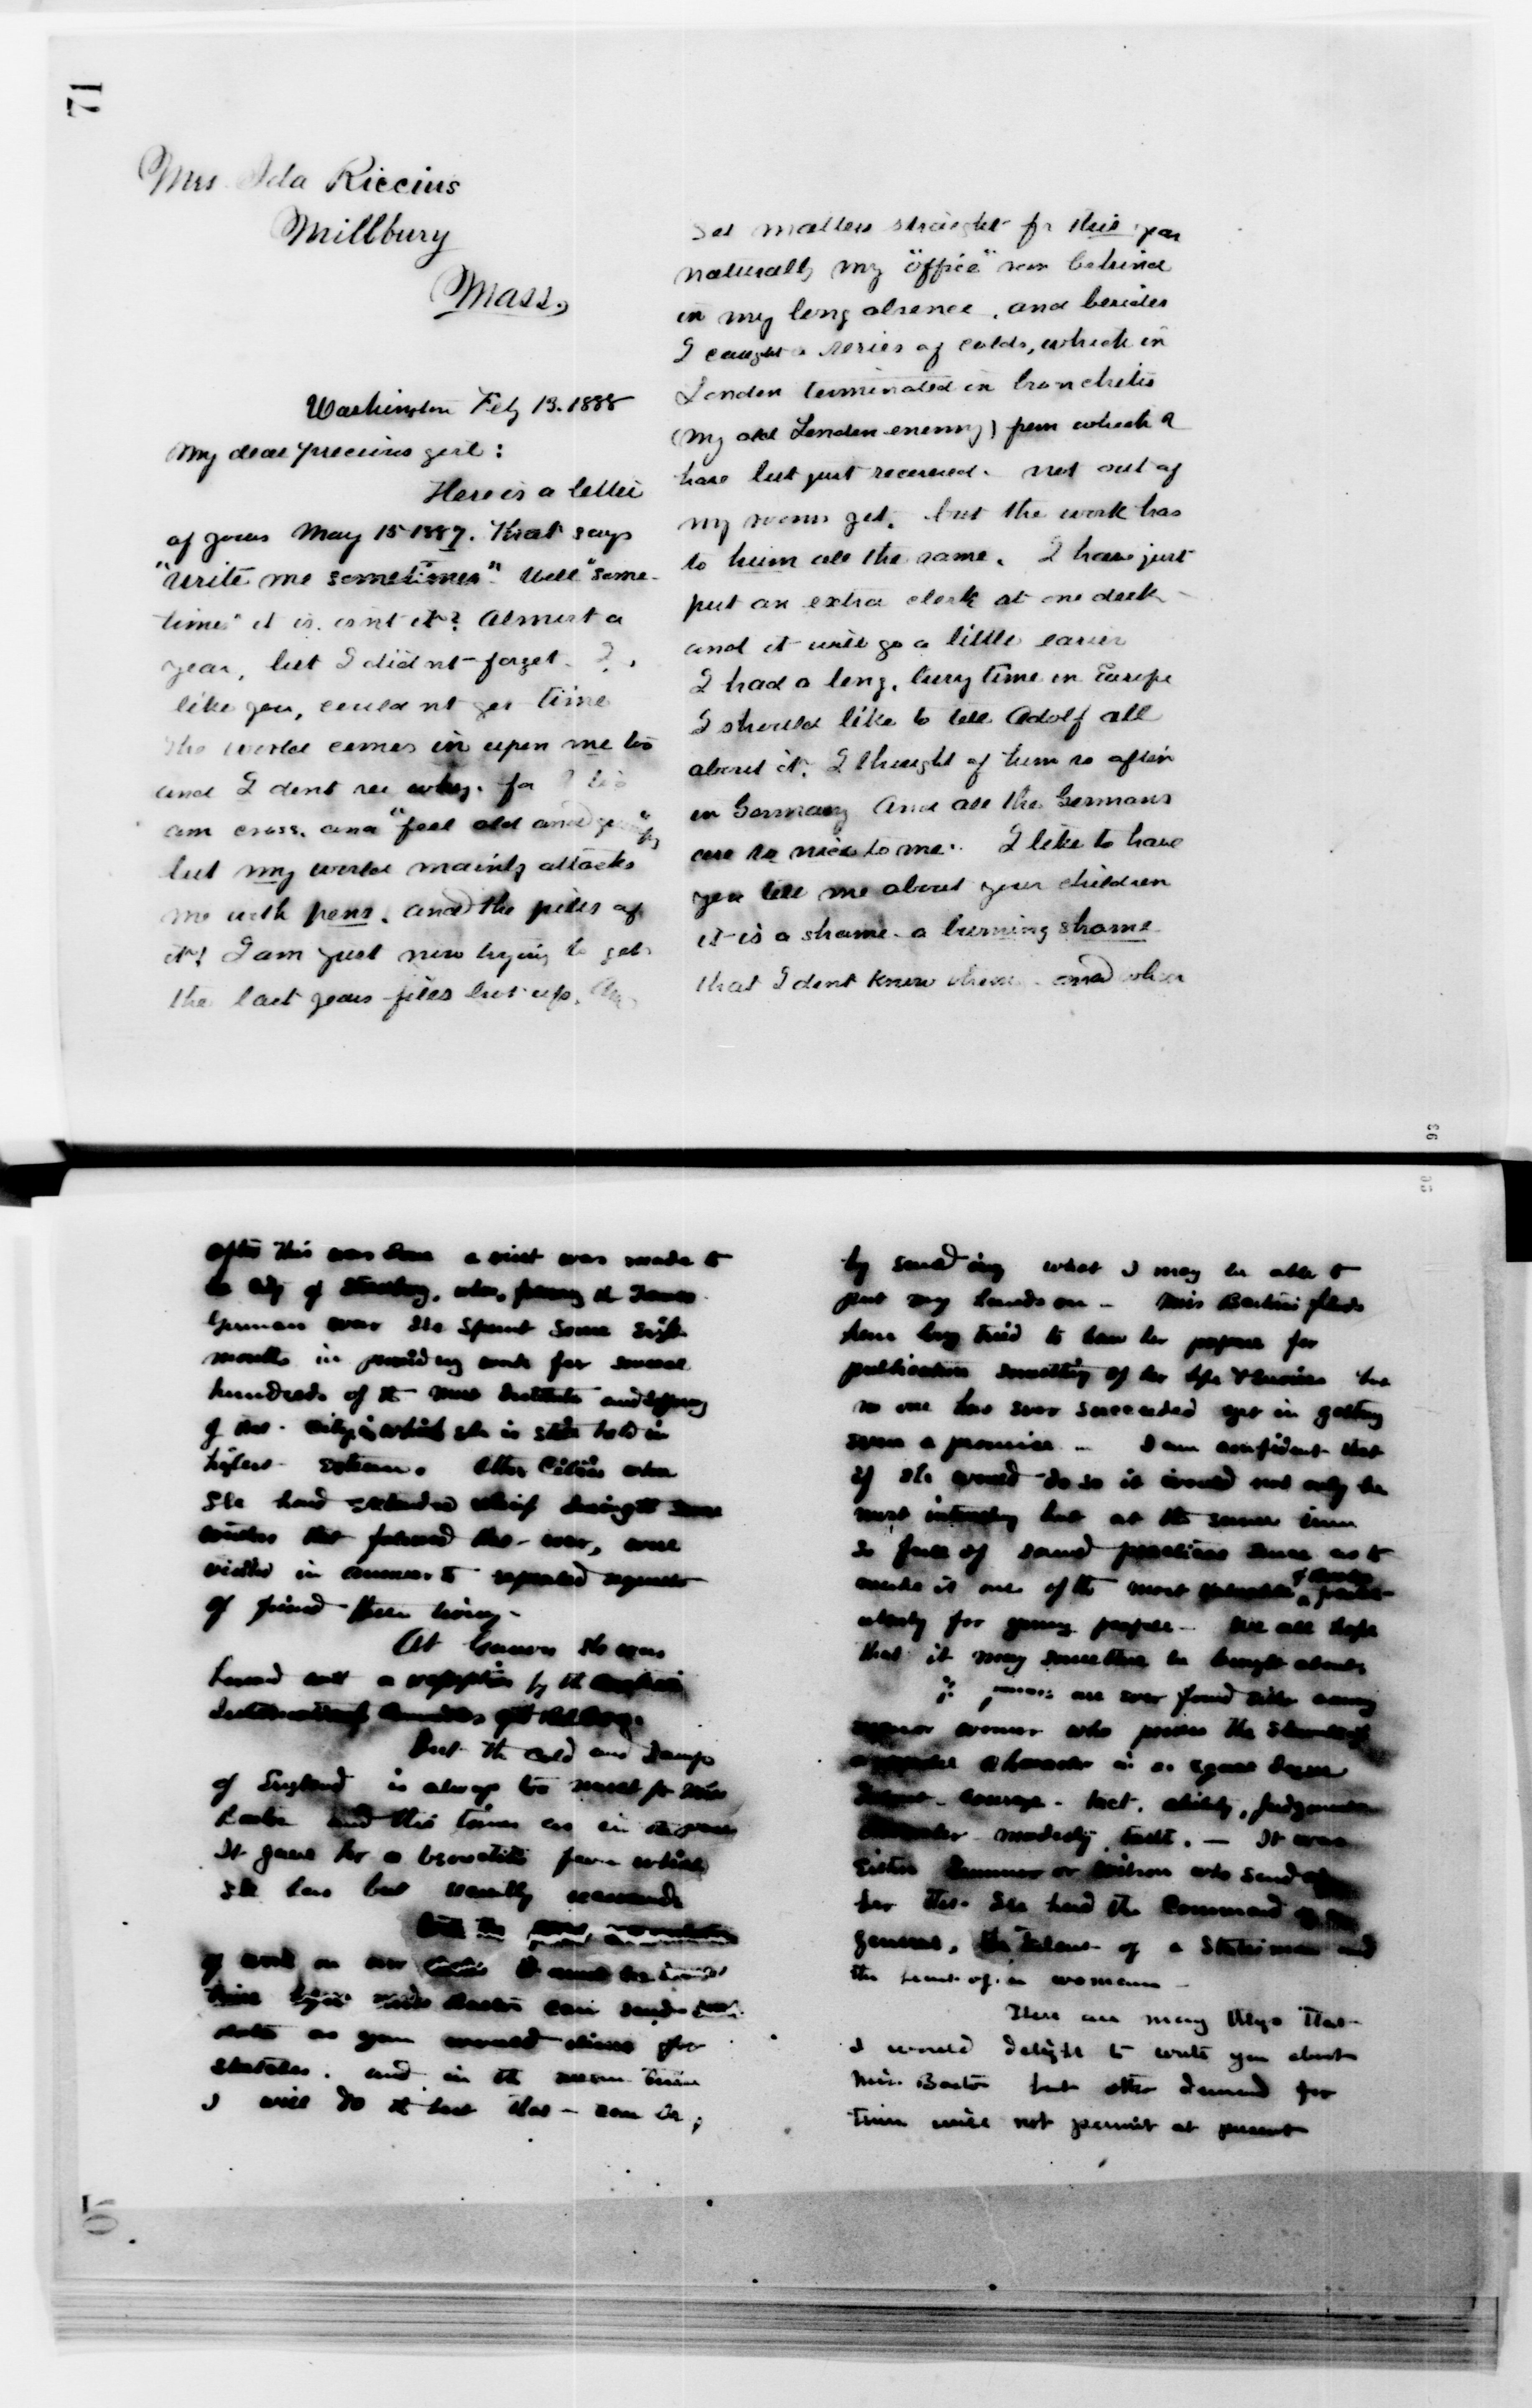 71
Mrs Ida Riccius
Millbury
Mass,
Washington Feby 13. 1888
My dear precious girl:
Here is a letter
of yours May 15 1887. That says
"Write me sometimes". Well "some-
times" it is. isnt it? Almost a
year, but I didnt forget. I,
like you, couldnt get time
The world comes in upon me too
and I dont see why. for I
am cross. and "feel old and
but my world mainly attacks
me with pens. and the piles of
it! I am just now trying to get
the last years files put up.
set matters straight for this year
naturally my "office" ran behind
in my long absence, and besides
I caught a series of colds, which in
London terminated in bronchitis
(my old London enemy) from which I
have but just recovered. not out of
my rooms yet. but the work has
to hum all the same. I have just
put an extra clerk at one desk
and it will go a little easier
I had a long, busy time in Europe
I should like to tell Adolf all
about it. I thought of him so often
in Germany And all the Germans
are so nice to me. I like to have
you tell me about your children
it is a shame - a burning shame
that I dont know and when
93
after this was done a visit was made to
city of
German war she spent some six
months in providing work for several
hundreds of the most destitute and
city in which she is still held in
highest esteem. Other Cities when
she had extended relief during the same
winter that followed the war, were
visited in answer to repeated requests
of friends there living -
At she was
with a reception by the
But the cold and damp
of England is always too much for Miss
Barton and this time as in
It gave her a bronchitis from which
she has but
of work on our
time before Miss Barton can send
as you would for
sketches. and in the mean time
I will do the best that can be,
by sending what I may be able to
put my hands on - Miss Bartons friends
have long tried to have her prepare for
publication something of her life
no one has ever succeeded yet in getting
even a promise - I am confident that
if she would do so it would not only be
most interesting but at the same time
so full of sound practical sense as to
make it one of the most valuable
for young people - We all hope
that it may sometime be brought about
are ever found either among
men or women who possess the
character in so equal degree
courage - tact, ability, judgment
modesty, - It was
either Sumner or Wilson who said of
her that she had the Command of
general, the talent of a Statesman and
the of a woman -
There are many things that
I would delight to write you about
Miss Barton but other demand for
time will not permit at present